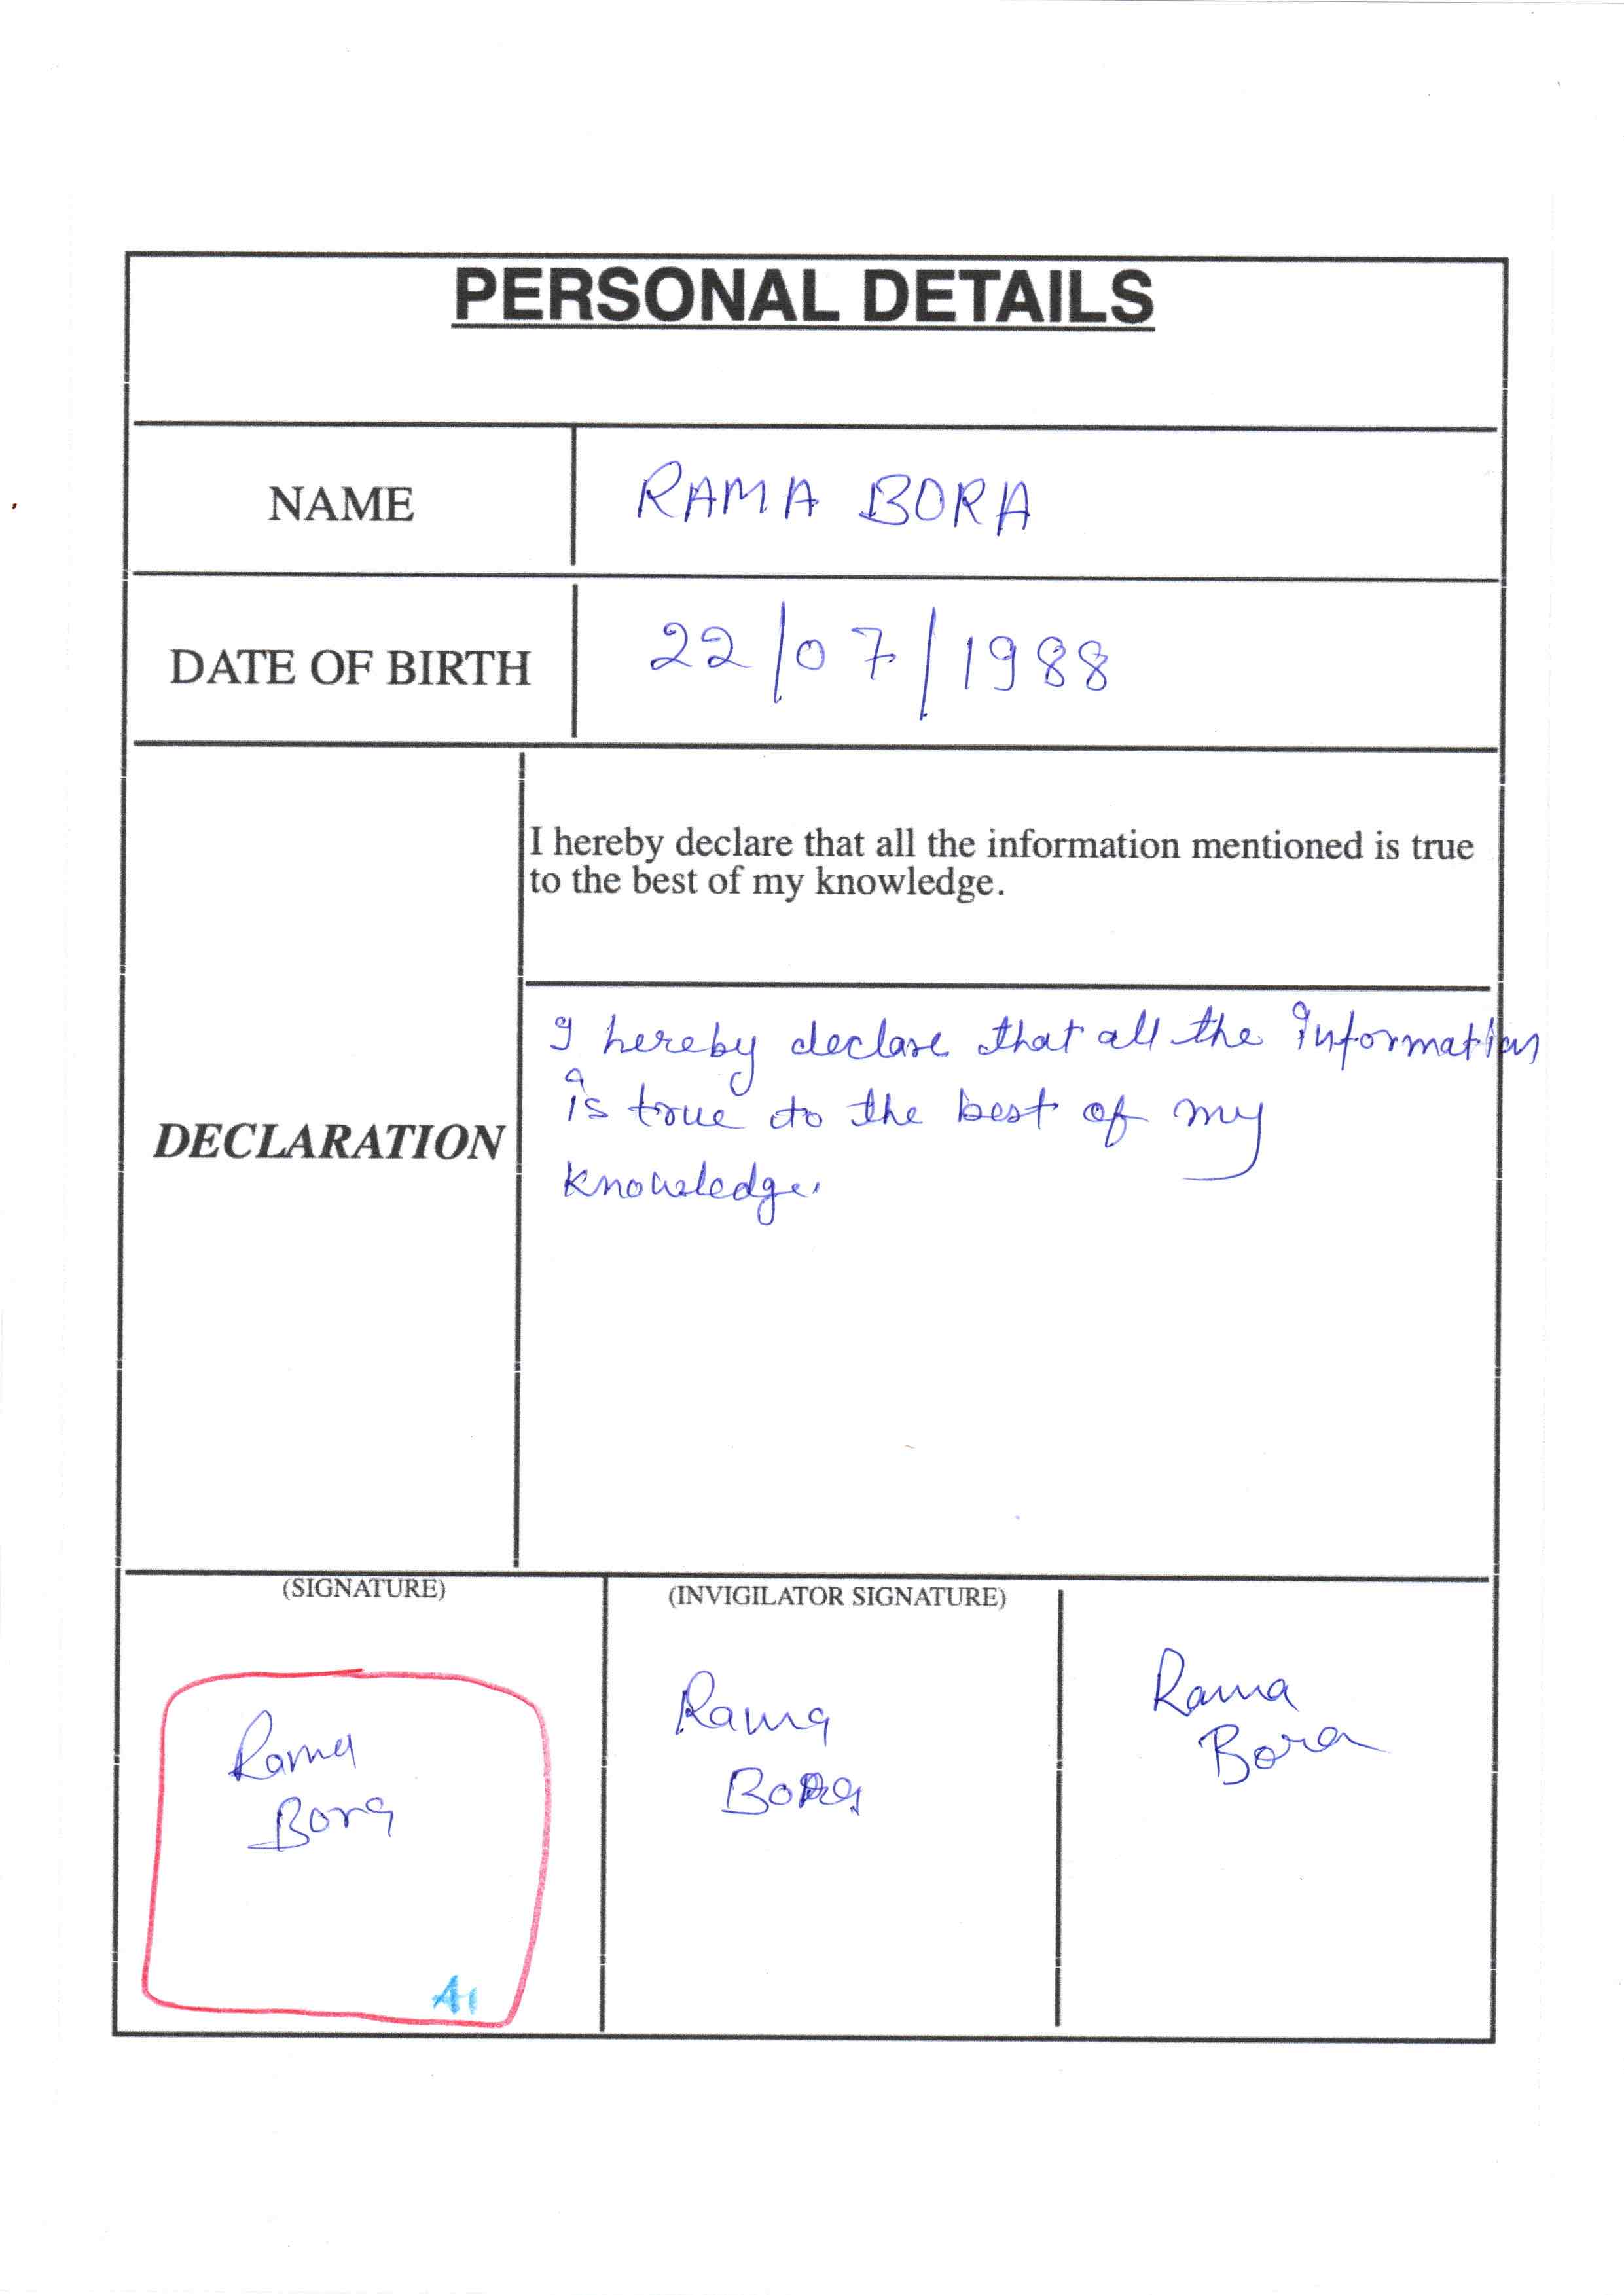 PERSONAL DETAILS
NAME
RAMA BORA
DATE OF BIRTH
22/07/1988
I hereby declare that all the information mentioned is true
to the best of my knowledge.
DECLARATION
I hereby declare that all the Information
is true to the best of my
knowledge.
(SIGNATURE)
Rama
Bora
A1
(INVIGILATOR SIGNATURE)
Rama
Bora
Rama
Bora